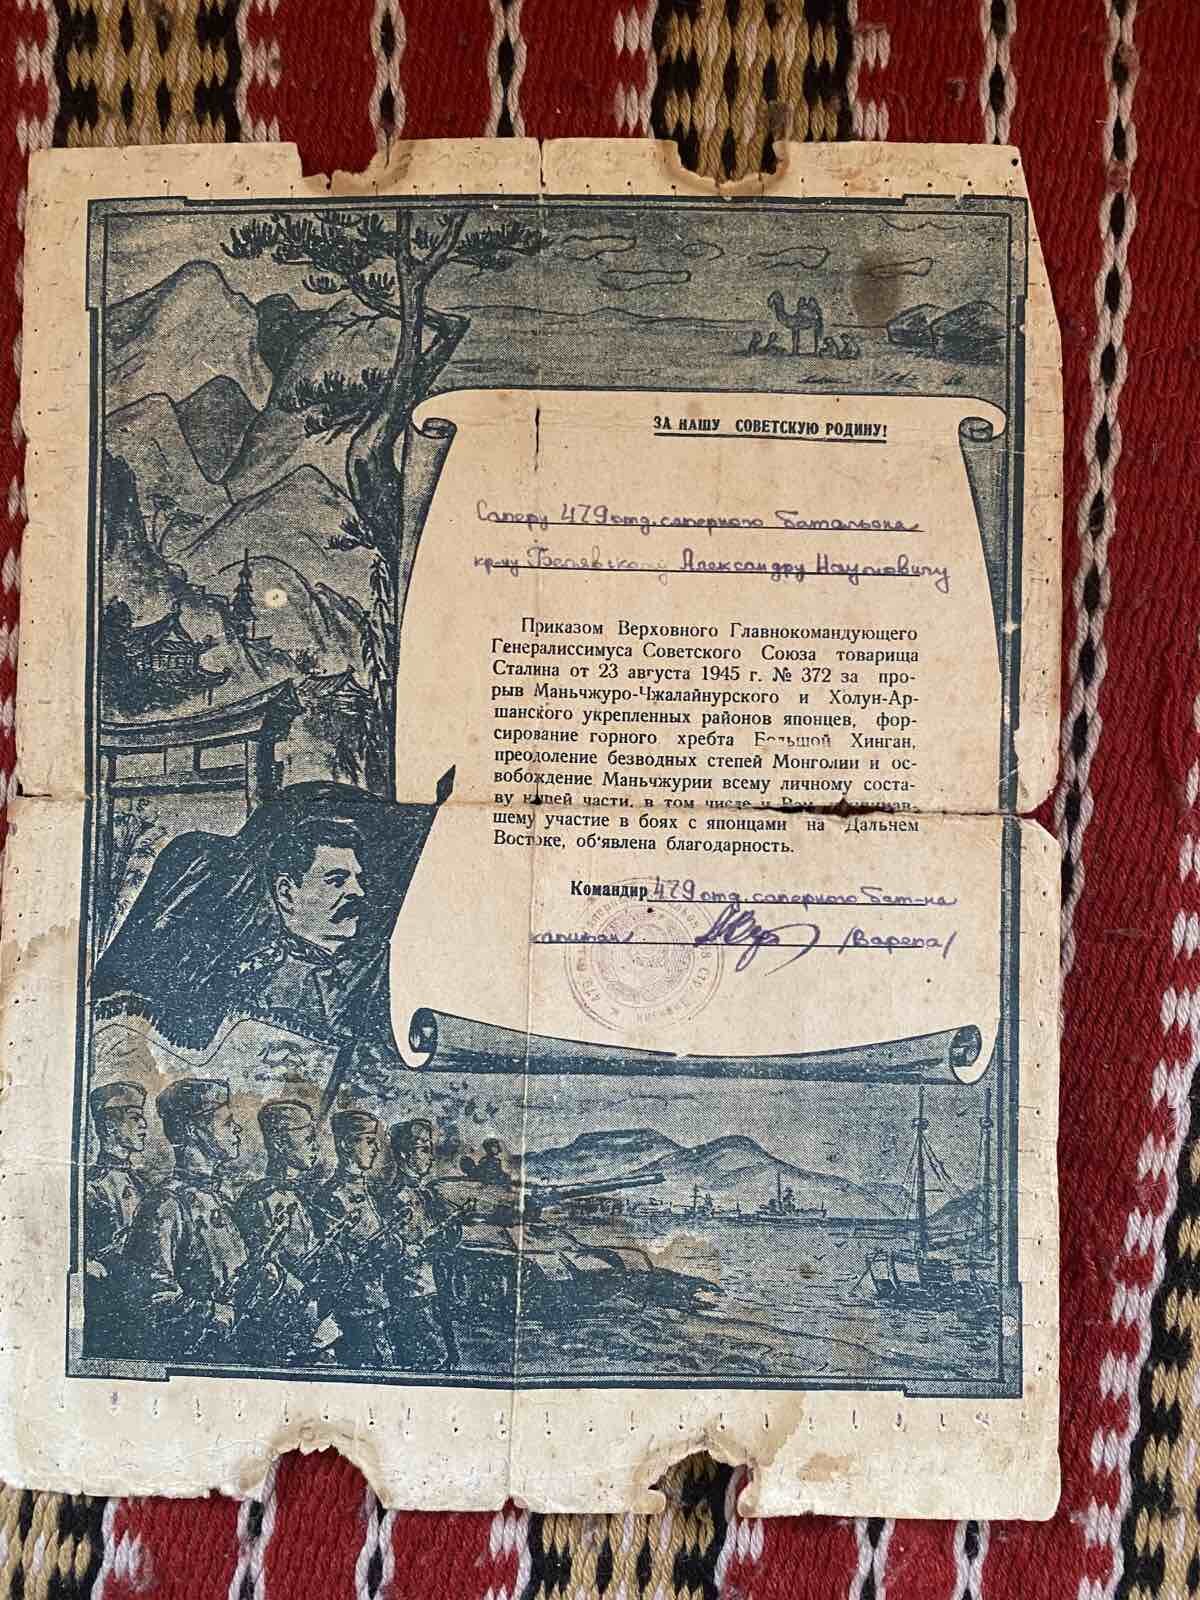 ЗА НАШУ СОВЕТСКУЮ РОДИНУ!
Саперу 479 отд. саперного батальона
кр-цу Белявскому Александру Наумовичу
Приказом Верховного Главнокомандующего
Генералиссимуса Советского Союза товарища
Сталина от 23 августа 1945 г. № 372 за про-
рыв Маньчжуро-Чжалайнурского и Холун-Ар-
шанского укрепленных районов японцев, фор-
сирование горного хребта Большой Хинган,
преодоление безводных степей Монголии и ос-
вобождение Маньчжурии всему личному соста-
ву нашей части, в том числе и Вам
шему участие в боях с японцами на Дальнем
Востоке, об'явлена благодарность.
Командир 479 отд. саперного бат-на
капитан /Варепа/